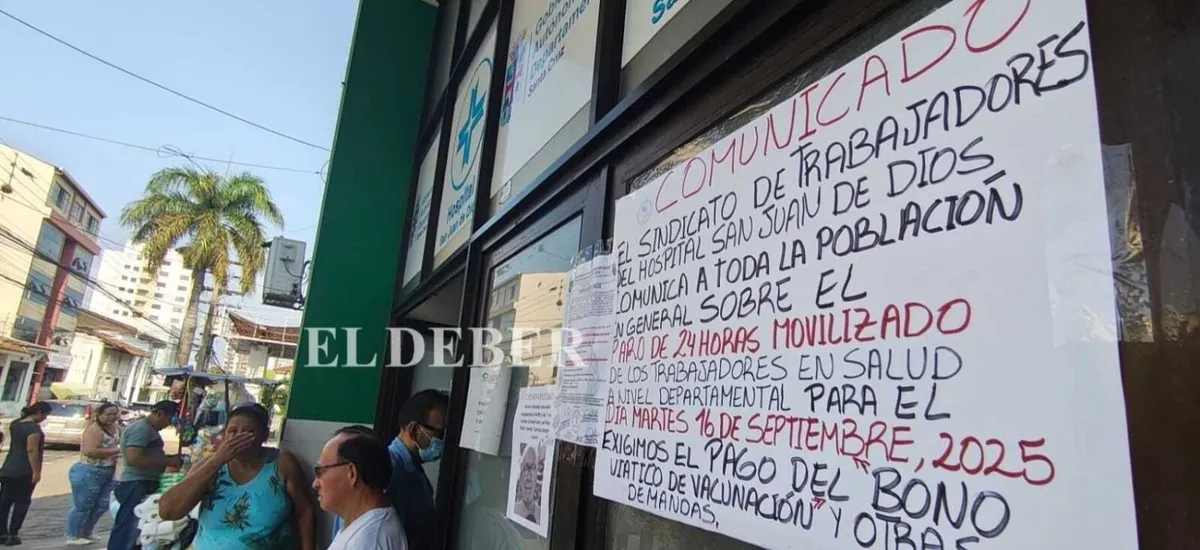 Gobierno
Autónomo
Departamental
Santa Cruz
Hospital
San Juan de Dios
EL DEBER
COMUNICADO
EL SINDICATO DE TRABAJADORES
DEL HOSPITAL SAN JUAN DE DIOS
COMUNICA A TODA LA POBLACIÓN
EN GENERAL SOBRE EL
PARO DE 24 HORAS MOVILIZADO
DE LOS TRABAJADORES EN SALUD
A NIVEL DEPARTAMENTAL PARA EL
DIA MARTES 16 DE SEPTIEMBRE, 2025
EXIGIMOS EL PAGO DEL "BONO
VIATICO DE VACUNACIÓN" Y OTRAS
DEMANDAS.